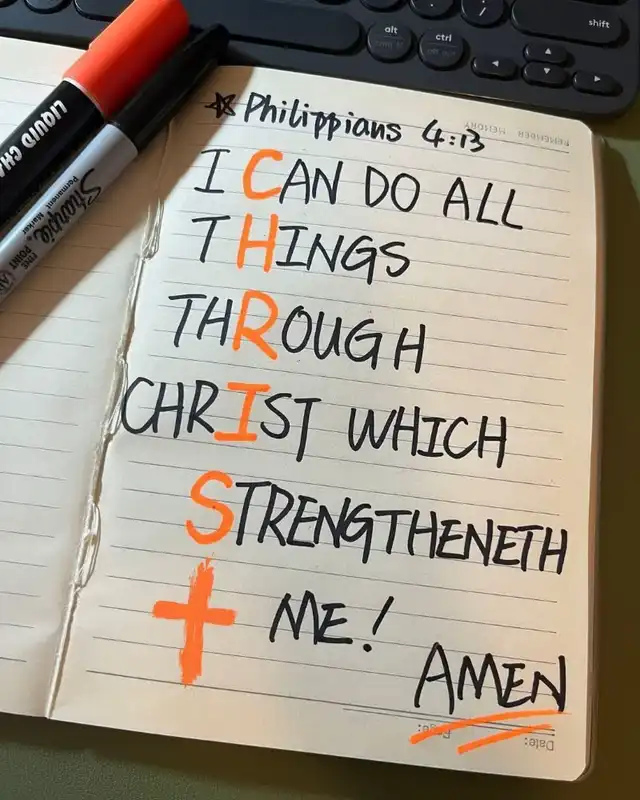 alt
ctrl
shift
LIQUID CHA
Sharpie
Permanent Marker
FINE POINT
REMEMBER MEMORY
☆Philippians 4:13
I CAN DO ALL
THINGS
THROUGH
CHRIST WHICH
STRENGTHENETH
ME!
AMEN
Page:
Date: